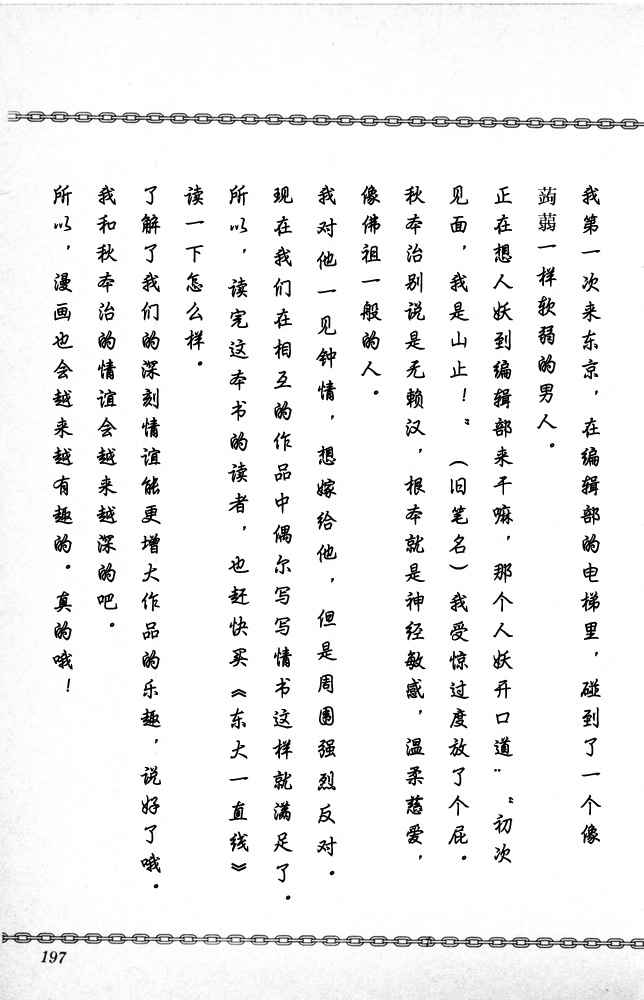 我第一次来东京，在编辑部的电梯里，碰到了一个像
蒟蒻一样软弱的男人。
正在想人妖到编辑部来干嘛，那个人妖开口道："初次
见面，我是山止！"（旧笔名）我受惊过度放了个屁。
秋本治别说是无赖汉，根本就是神经敏感，温柔慈爱，
像佛祖一般的人。
我对他一见钟情，想嫁给他，但是周围强烈反对。
现在我们在相互的作品中偶尔写写情书这样就满足了。
所以，读完这本书的读者，也赶快买《东大一直线》
读一下怎么样。
了解了我们的深刻情谊能更增大作品的乐趣，说好了哦。
我和秋本治的情谊会越来越深的吧。
所以，漫画也会越来越有趣的。真的哦！
197